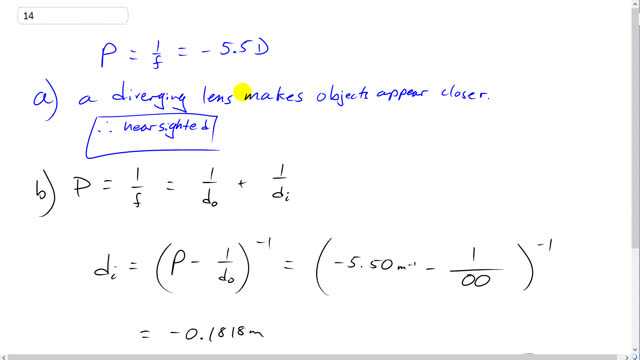 14
P = 1/f = - 5.5D
a) a diverging lens makes objects appear closer.
∴ nearsighted
b) P = 1/f = 1/do + 1/di
di = (P - 1/do)^-1 = (-5.50 m^-1 - 1/00)^-1
= -0.1818m